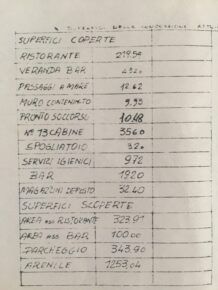 SUPERFICI DELLA CONCESSIONE
SUPERFICI COPERTE
RISTORANTE 219.54
VERANDA BAR 43.20
PASSAGGI A MARE 12.62
MURO CONTENIMENTO 9.93
PRONTO SOCCORSO 10.48
N° 13 CABINE 35.60
SPOGLIATOIO 3.20
SERVIZI IGIENICI 9.72
BAR 19.20
MAGAZZINI DEPOSITO 32.40
SUPERFICI SCOPERTE
AREA ASS. RISTORANTE 323.91
AREA ASS BAR 100.00
PARCHEGGIO 343.90
ARENILE 1253.04